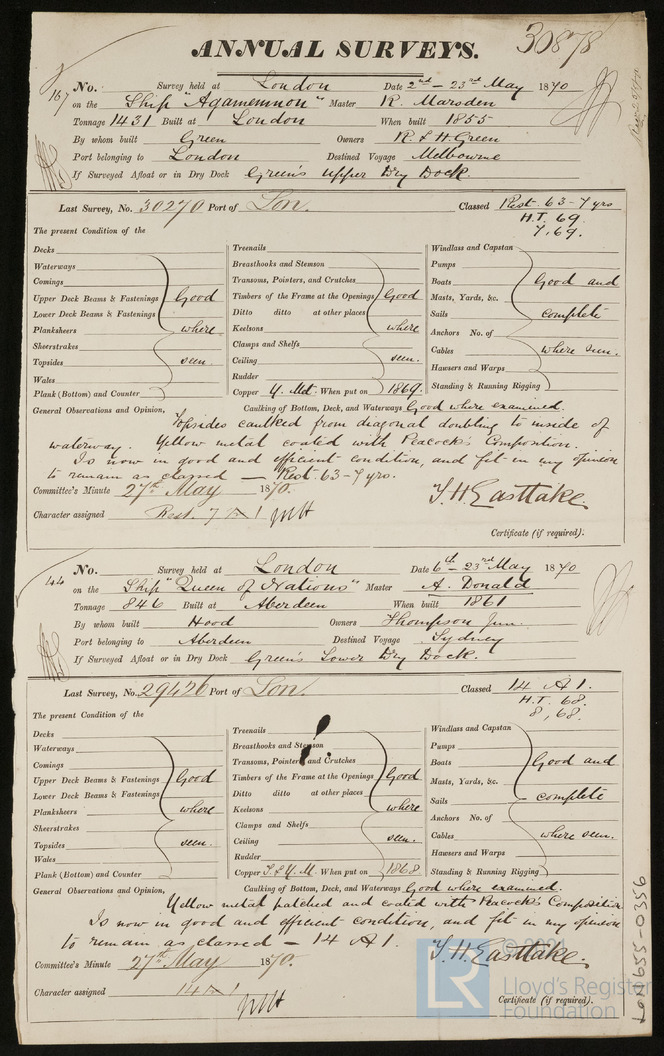 ANNUAL SURVEYS.
30878
167
No. Survey held at London Date 2nd – 23rd May 1870
on the Ship "Agamemnon" Master R. Marsden
Tonnage 1431 Built at London When built 1855
By whom built Green Owners R. & H Green
Port belonging to London Destined Voyage Melbourne
If Surveyed Afloat or in Dry Dock Green's Upper Dry Dock.
Last Survey, No. 30270 Port of Lon. Classed Rest. 63 - 7 yrs
H.T. 69.
7,69.
The present Condition of the
Decks
Waterways
Comings
Upper Deck Beams & Fastenings Good
Lower Deck Beams & Fastenings
Planksheers where
Sheerstrakes
Topsides seen.
Wales
Plank (Bottom) and Counter
Treenails
Breasthooks and Stemson
Transoms, Pointers, and Crutches
Timbers of the Frame at the Openings Good
Ditto ditto at other places
Keelsons where
Clamps and Shelfs
Ceiling seen.
Rudder
Copper Y. Met. When put on 1869.
Windlass and Capstan
Pumps
Boats Good and
Masts, Yards, &c.
Sails complete
Anchors No. of
Cables where seen.
Hawsers and Warps
Standing & Running Rigging
General Observations and Opinion, Caulking of Bottom, Deck, and Waterways Good where examined.
Topsides caulked from diagonal doubling to inside of
waterway. Yellow metal coated with Peacock's Composition.
Is now in good and efficient condition, and fit in my opinion
to remain as classed — Rest. 63 - 7 yrs.
Committee's Minute 27th May 1870.
T. H. Easttake.
Character assigned Rest. 7 A 1
Certificate (if required).
44
No. Survey held at London Date 6th – 23rd May 1870
on the Ship "Queen of Nations" Master A. Donald
Tonnage 846 Built at Aberdeen When built 1861
By whom built Hood Owners Thompson Jun.
Port belonging to Aberdeen Destined Voyage Sydney
If Surveyed Afloat or in Dry Dock Green's Lower Dry Dock.
Last Survey, No. 29426 Port of Lon. Classed 14 A 1.
H.T. 68.
8,68.
The present Condition of the
Decks
Waterways
Comings
Upper Deck Beams & Fastenings Good
Lower Deck Beams & Fastenings
Planksheers where
Sheerstrakes
Topsides seen.
Wales
Plank (Bottom) and Counter
Treenails
Breasthooks and Stemson
Transoms, Pointers and Crutches
Timbers of the Frame at the Openings Good
Ditto ditto at other places
Keelsons where
Clamps and Shelfs
Ceiling seen.
Rudder
Copper Y. M. When put on 1868.
Windlass and Capstan
Pumps
Boats Good and
Masts, Yards, &c.
Sails complete
Anchors No. of
Cables where seen.
Hawsers and Warps
Standing & Running Rigging
General Observations and Opinion, Caulking of Bottom, Deck, and Waterways Good where examined.
Yellow metal patched and coated with Peacock's Composition.
Is now in good and efficient condition, and fit in my opinion
to remain as classed – 14 A 1.
Committee's Minute 27th May 1870.
T. H. Easttake.
Character assigned 14 A 1
Certificate (if required).
LR
Lloyd's Register
Foundation
LON655-0356